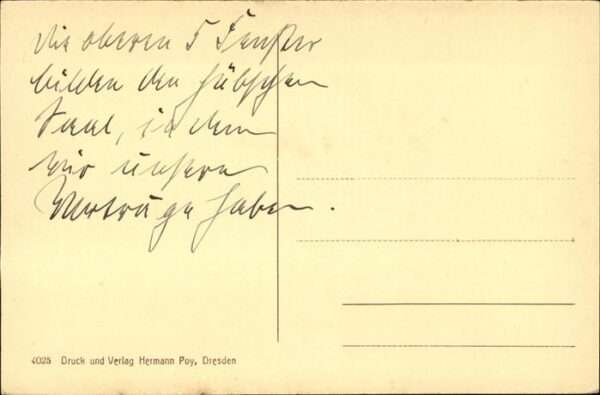 Die oberen 5 Fenster
bilden den hübschen
Saal, in dem
wir unsere
Vorträge haben.
4025 Druck und Verlag Hermann Poy, Dresden